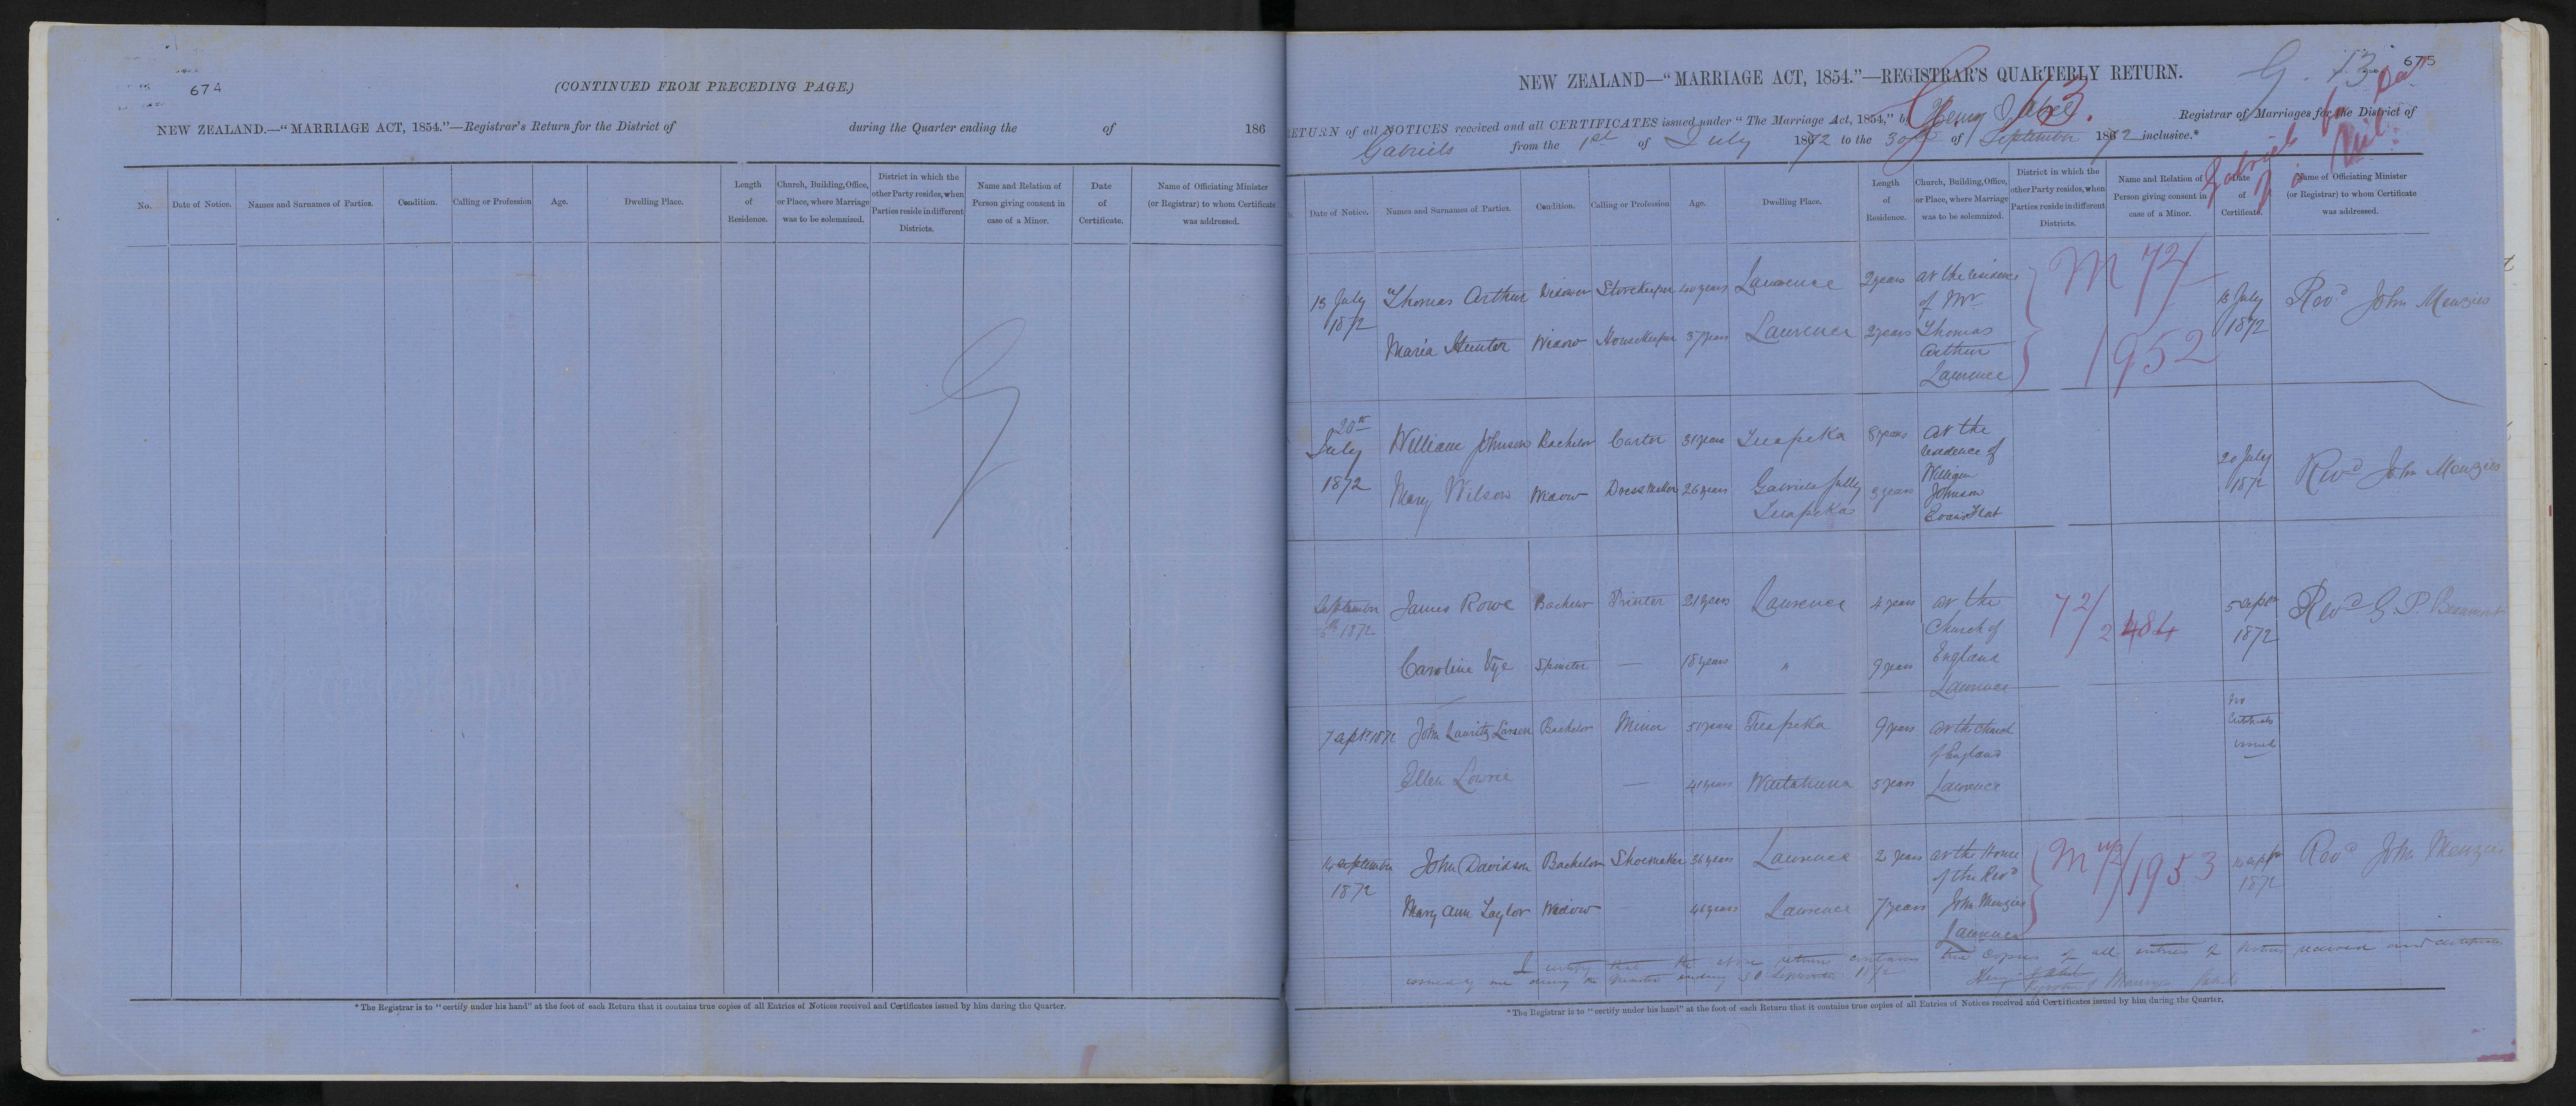 674
(CONTINUED FROM PRECEDING PAGE.)
NEW ZEALAND.—"MARRIAGE ACT, 1854."—Registrar's Return for the District of during the Quarter ending the of 186
No. Date of Notice. Names and Surnames of Parties. Condition. Calling or Profession Age. Dwelling Place. Length of Residence. Church, Building, Office, or Place, where Marriage was to be solemnized. District in which the other Party resides, when Parties reside in different Districts. Name and Relation of Person giving consent in case of a Minor. Date of Certificate. Name of Officiating Minister (or Registrar) to whom Certificate was addressed.
*The Registrar is to "certify under his hand" at the foot of each Return that it contains true copies of all Entries of Notices received and Certificates issued by him during the Quarter.
675
G. 13
NEW ZEALAND—"MARRIAGE ACT, 1854."—REGISTRAR'S QUARTERLY RETURN.
RETURN of all NOTICES received and all CERTIFICATES issued under "The Marriage Act, 1854," by Henry J Abel Registrar of Marriages for the District of
Gabriels from the 1st of July 1872 to the 30th of September 1872 inclusive.*
Date of Notice. Names and Surnames of Parties. Condition. Calling or Profession Age. Dwelling Place. Length of Residence. Church, Building, Office, or Place, where Marriage was to be solemnized. District in which the other Party resides, when Parties reside in different Districts. Name and Relation of Person giving consent in case of a Minor. Date of Certificate. Name of Officiating Minister (or Registrar) to whom Certificate was addressed.
13 July 1872 Thomas Arthur Widower Storekeeper 40 years Lawrence 2 years at the residence of Mr Thomas Arthur Lawrence M 72/1952 13 July 1872 Revd John Menzies
Maria Hunter Widow Housekeeper 37 years Lawrence 2 years
20th July 1872 William Johnson Bachelor Carter 31 years Tuapeka 8 years at the residence of William Johnson Evans Flat 20 July 1872 Revd John Menzies
Mary Wilson Widow Dressmaker 26 years Gabriels Gully Tuapeka 3 years
September 5th 1872 James Rowe Bachelor Printer 21 years Lawrence 4 years at the Church of England Lawrence 72/2484 5 Septr 1872 Revd G. P. Beaumont
Caroline Vye Spinster — 18 years " 9 years
7 Sept 1872 John Lauritz Larsen Bachelor Miner 51 years Tuapeka 9 years at the Church of England Lawrence no certificate issued
Ellen Lowrie — 41 years Waitahuna 5 years
14 September 1872 John Davidson Bachelor Shoemaker 36 years Lawrence 2 years at the House of the Revd John Menzies Lawrence M 72/1953 14 Sept 1872 Revd John Menzies
Mary Ann Taylor Widow 46 years Lawrence 7 years
I certify that the above return contains true copies of all entries of notices received and certificates
issued by me during the Quarter ending 30 September 1872
*The Registrar is to "certify under his hand" at the foot of each Return that it contains true copies of all Entries of Notices received and Certificates issued by him during the Quarter.